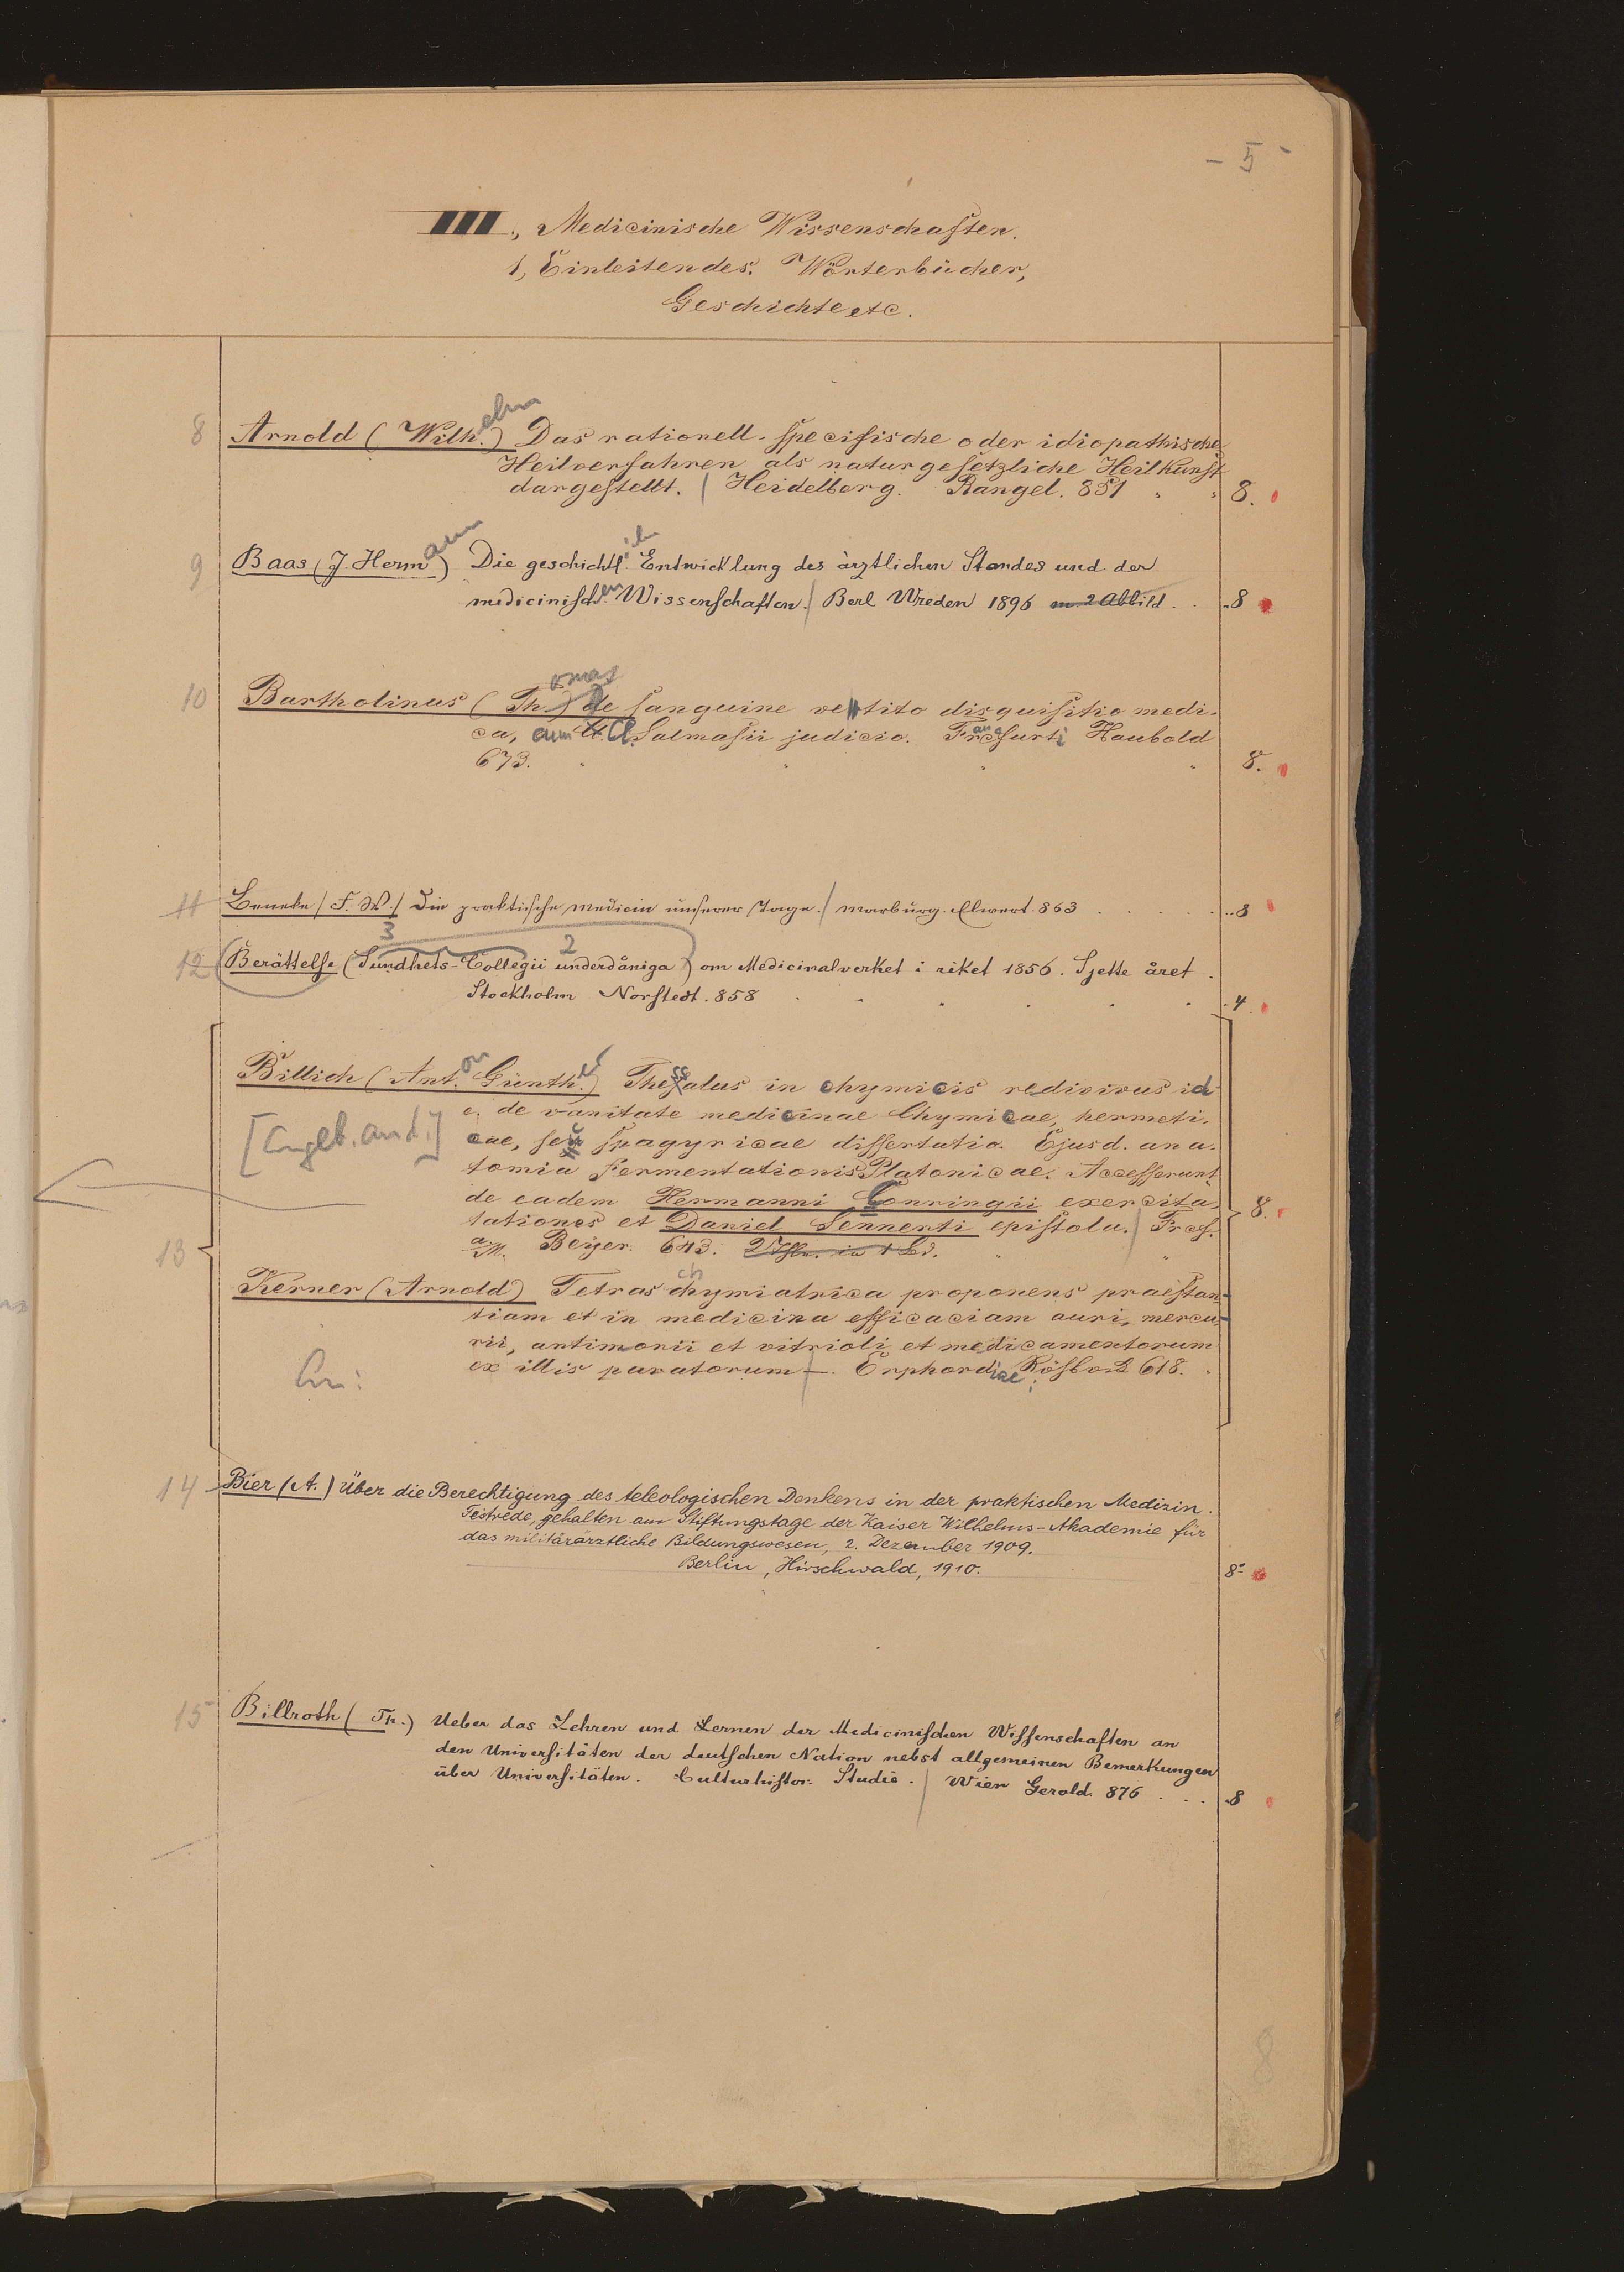 - 5 -
III., Medicinische Wissenschaften.
1, Einleitendes. Wörterbücher,
Geschichte etc.
8 Arnold (Wilhelm) Das rationell-specifische oder idiopathische
Heilverfahren als naturgesetzliche Heilkunst
dargestellt. | Heidelberg. Rangel. 851 8.
9 Baas (J. Hermann) Die geschichtlich Entwicklung des ärztlichen Standes und der
medicinischen Wissenschaften. | Berl Wreden 1896 m 2 Abbild. 8
10 Bartholinus (Thomas) de sanguine vetito disquisitio medi-
ca, cum Cl. Salmasii judicio. Francfurti Haubold
673. 8.
11 Beneke (F. W.) Die praktische Medicin unserer Tage. | Marburg. Elwert. 863 8
3 2
12 Berättelse (Sundhets-Collegii underdåniga) om Medicinalverket i riket 1856. Sjette året.
Stockholm Norstedt. 858 4
Billich (Anton Günther) Thessalus in chymicis redivivus id
e. de vanitate medicinae Chymicae, hermeti-
[Angeb. and.] cae, seu spagyricae dissertatio. Ejusd. ana-
tomia Fermentationis Platonicae. Accesserunt
de eadem Hermanni Conringii exercita-
tationes et Daniel Sennerti epistola. | Frcf. 8.
a/M. Beyer. 643.
13
Kerner (Arnold) Tetras chymiatrica proponens praestan-
tiam et in medicina efficaciam auri, mercu-
rii, antimonii et vitrioli et medicamentorum
An: ex illis paratorum —. Erphordiae, 618.
14 Bier (A.) Über die Berechtigung des teleologischen Denkens in der praktischen Medizin.
Festrede, gehalten am Stiftungstage der Kaiser Wilhelms-Akademie für
das militärärztliche Bildungswesen, 2. Dezember 1909.
Berlin, Hirschwald, 1910. 8°
15 Billroth (Th.) Ueber das Lehren und Lernen der Medicinischen Wissenschaften an
den Universitäten der deutschen Nation nebst allgemeinen Bemerkungen
über Universitäten. Culturhistor. Studie. | Wien Gerold. 876 8
8